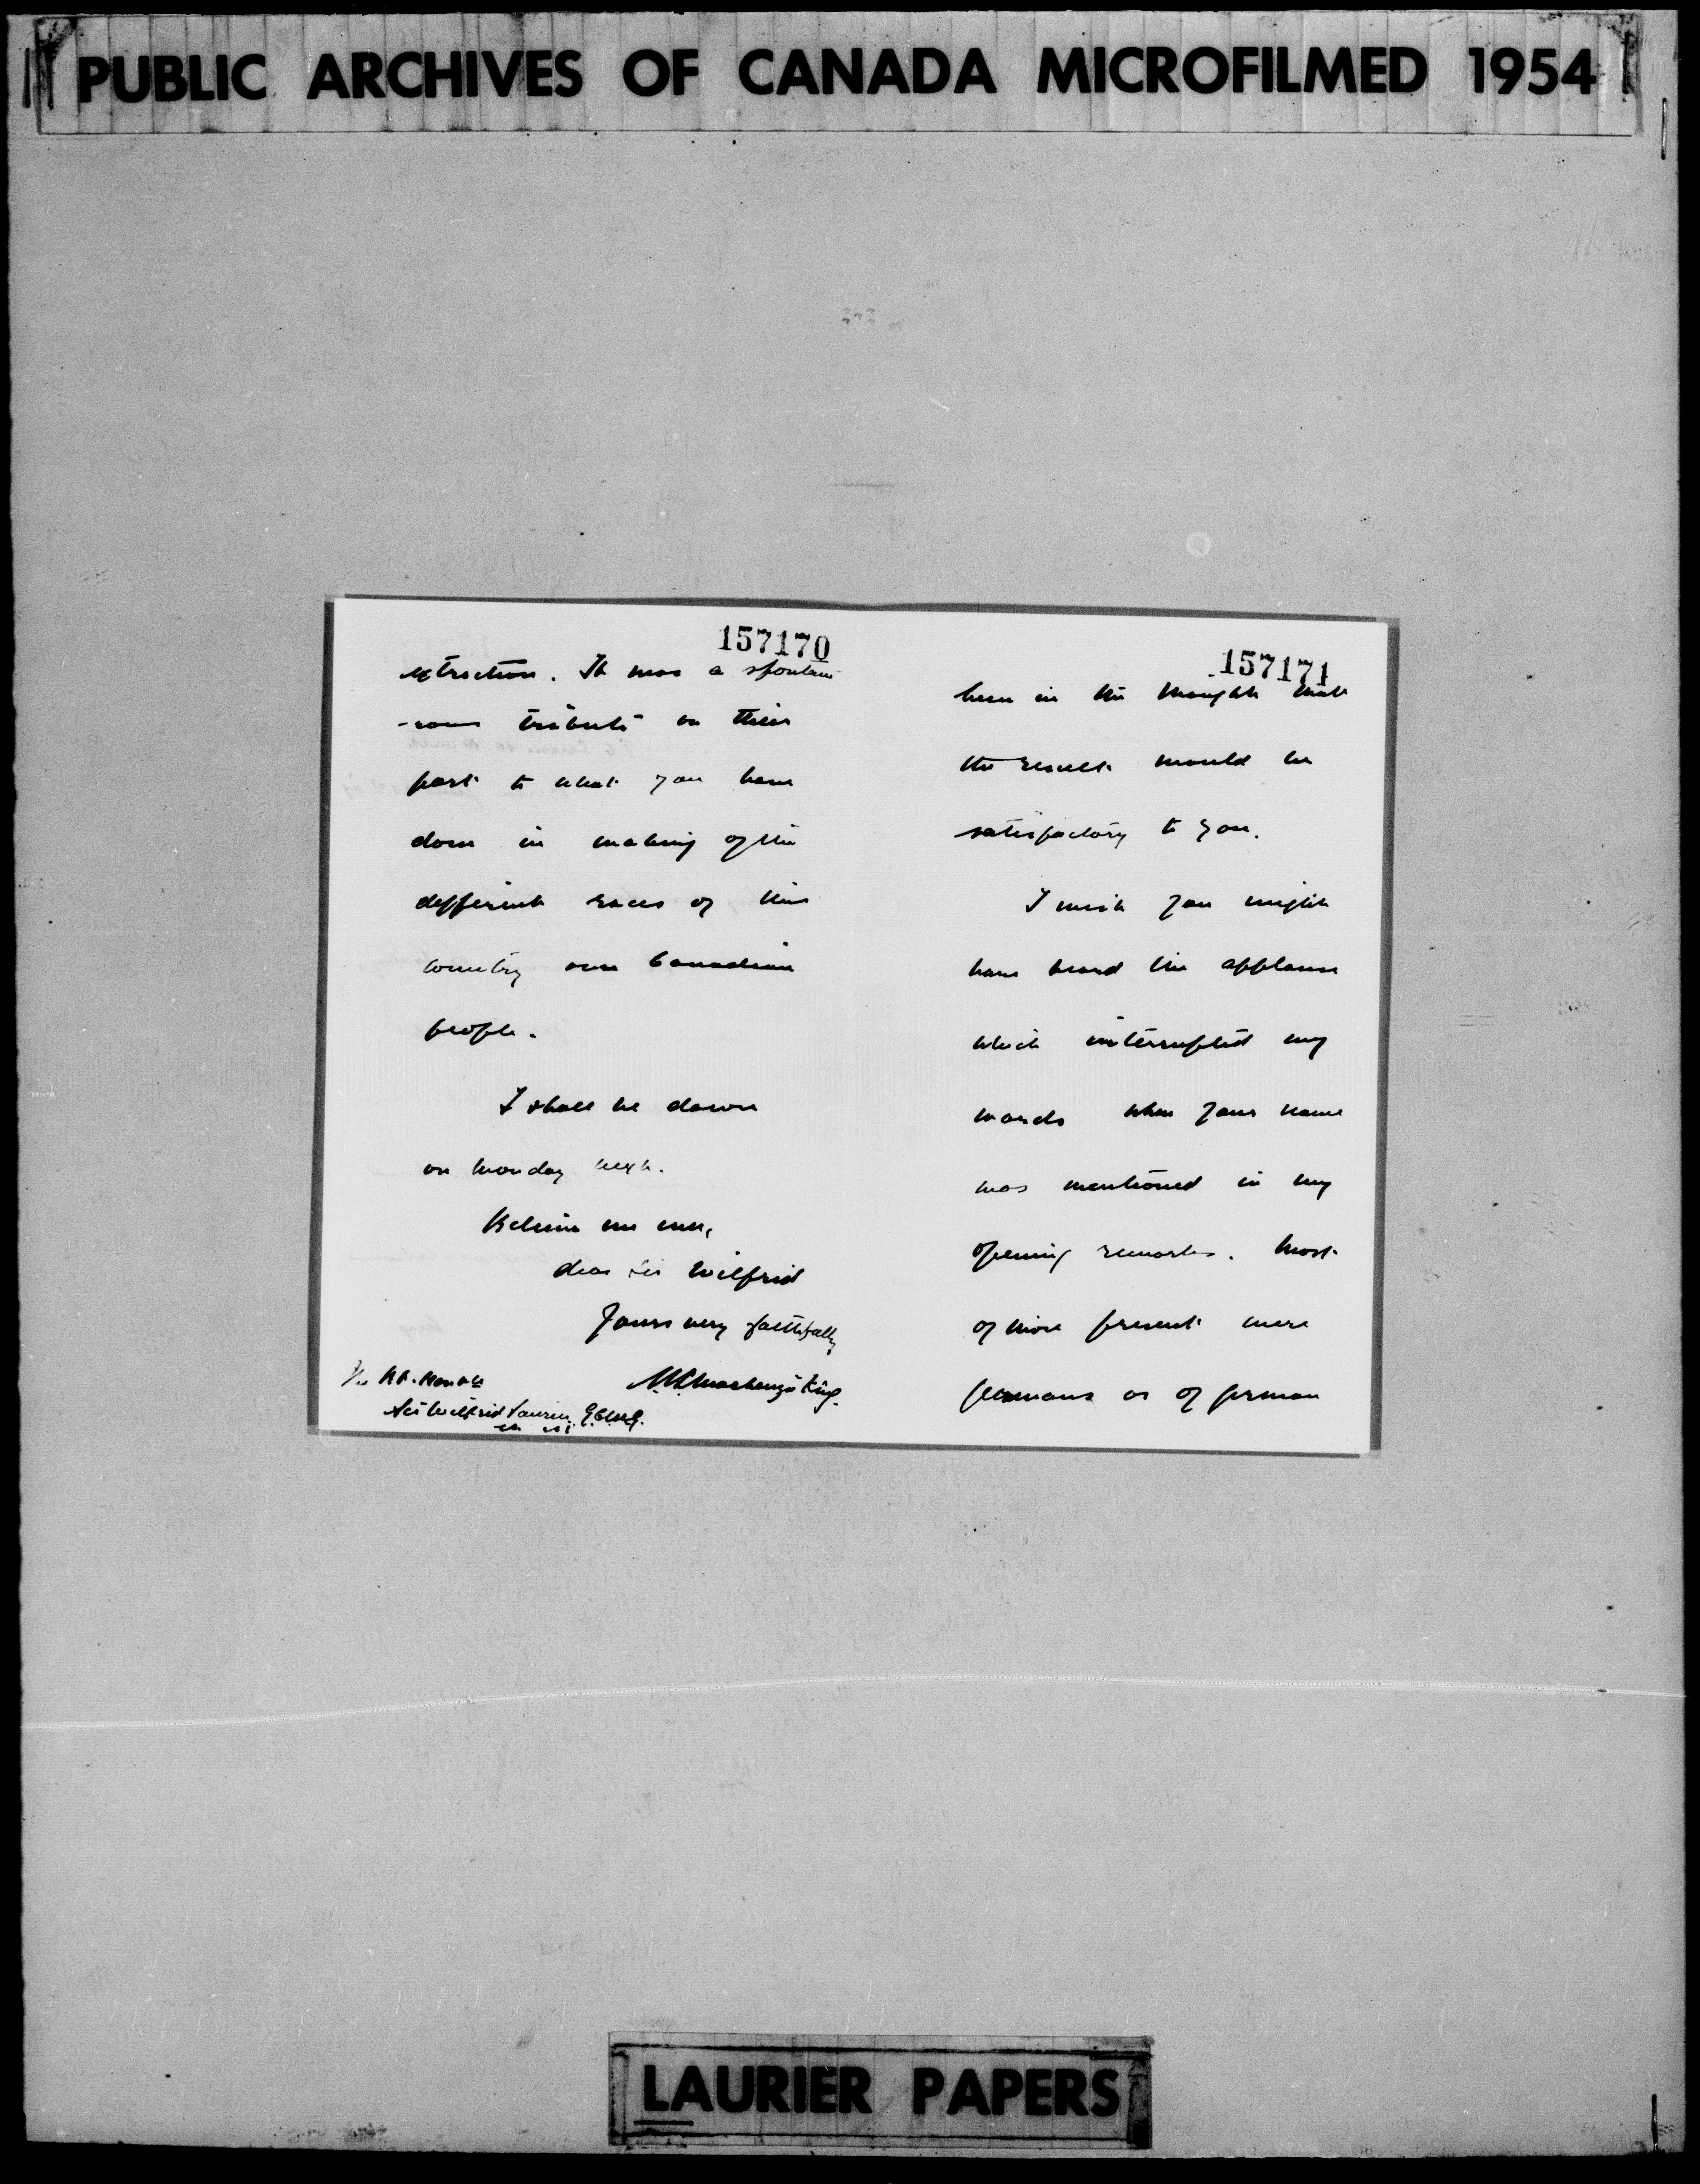 PUBLIC ARCHIVES OF CANADA MICROFILMED 1954
157170
extraction. It was a spontan-
-eous tribute on their
part to what you have
done in making of the
different races of this
country one Canadian
people.
I shall be down
on Monday next.
Believe me ever,
dear Sir Wilfrid
Yours very faithfully
W L Mackenzie King.
The Rt. Honble
Sir Wilfrid Laurier G.C.M.G.
157171
been in the thought that
the result would be
satisfactory to you.
I wish you might
have heard the applause
which interrupted my
words when your name
was mentioned in my
opening remarks. Most
of those present were
Germans or of German
LAURIER PAPERS